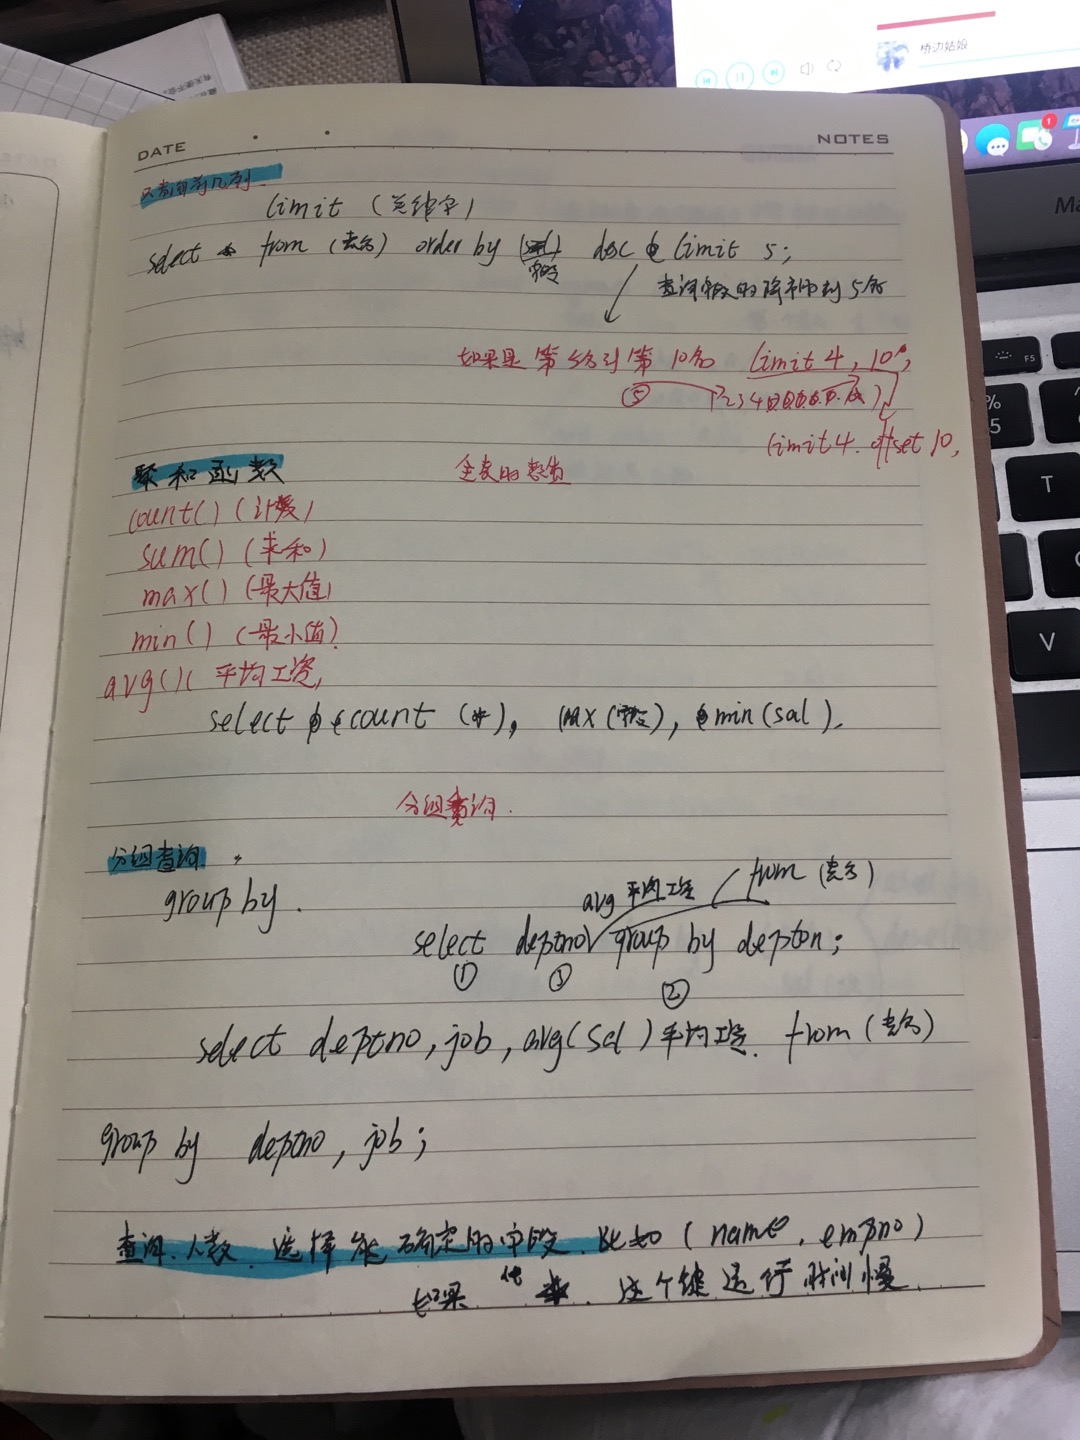 桥边姑娘
DATE
NOTES
只查询前几列
limit (关键字)
select * from (表名) order by 字段 desc limit 5;
查询字段的降序排列5名
如果是第5名到第10名 limit 4, 10,
⑤ 1 2 3 4
limit 4. offset 10,
聚和函数
全表的数据
count() (计数)
sum() (求和)
max() (最大值)
min() (最小值)
avg() ( 平均工资,
select count (*), max (字段), min (sal).
分组查询.
分组查询.
group by.
avg 平均工资 from (表名)
select deptno group by depton;
① ③ ②
select deptno, job, avg(sal) 平均工资. from (表名)
group by deptno, job;
查询.人数. 选择能确定的字段. 比如 (name, empno)
如果 代 *. 这个键运行时间慢
F5
%
5
T
V